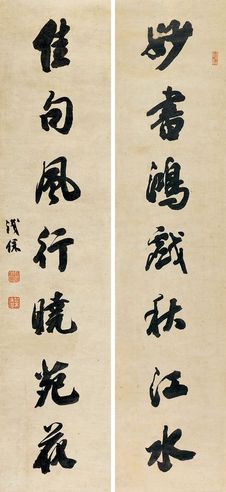 妙書鴻戲秋江水
佳句風行曉苑花